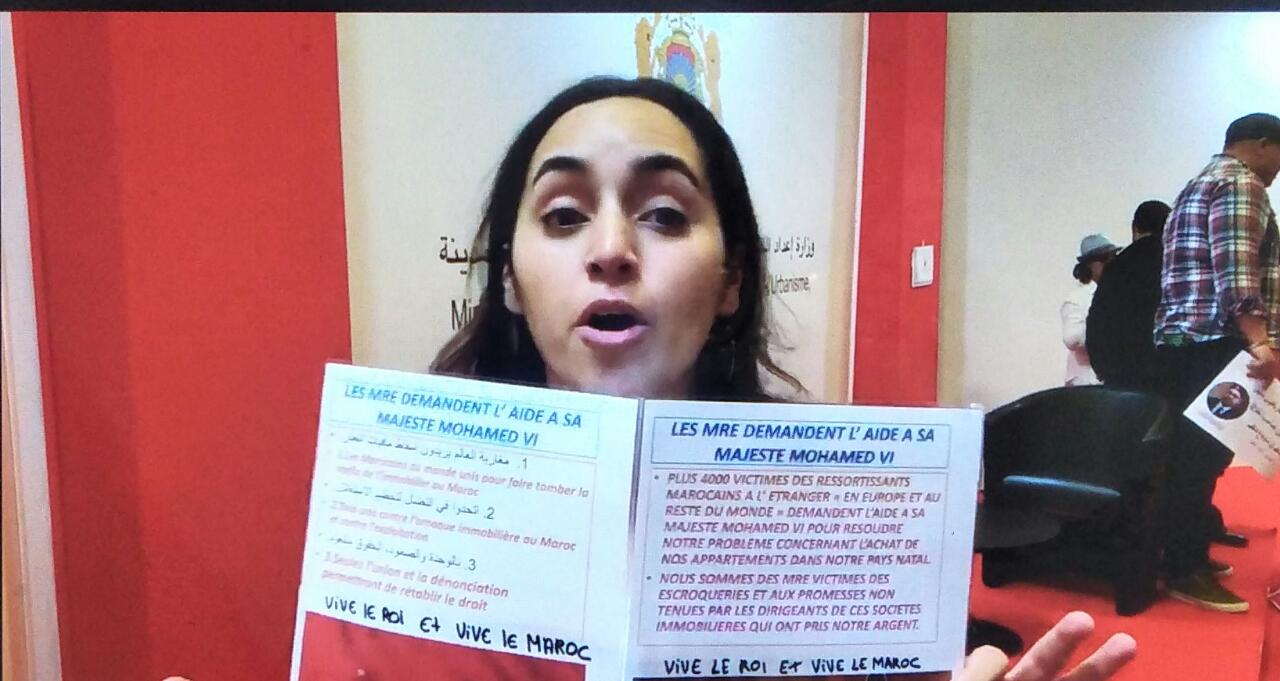 وزارة إعداد
ـينة
l'Urbanisme,
LES MRE DEMANDENT L' AIDE A SA
MAJESTE MOHAMED VI
1. مغاربة العالم يريدون
1.Les Marocains du monde unis pour faire tomber la
mafia de l'immobilier au Maroc
2. اتحدوا في النضال
2.Tous unis contre l'arnaque immobilière au Maroc
et contre l'exploitation
3. بالوحدة والصمود الحقوق ستعود
3.Seules l'union et la dénonciation
permettront de rétablir le droit
VIVE LE ROI Et VIVE lE MAROC
LES MRE DEMANDENT L' AIDE A SA
MAJESTE MOHAMED VI
• PLUS 4000 VICTIMES DES RESSORTISSANTS
MAROCAINS A L' ETRANGER « EN EUROPE ET AU
RESTE DU MONDE » DEMANDENT L'AIDE A SA
MAJESTE MOHAMED VI POUR RESOUDRE
NOTRE PROBLEME CONCERNANT L'ACHAT DE
NOS APPARTEMENTS DANS NOTRE PAYS NATAL.
• NOUS SOMMES DES MRE VICTIMES DES
ESCROQUERIES ET AUX PROMESSES NON
TENUES PAR LES DIRIGEANTS DE CES SOCIETES
IMMOBILIERES QUI ONT PRIS NOTRE ARGENT.
VIVE LE ROI Et VIVE LE MAROC